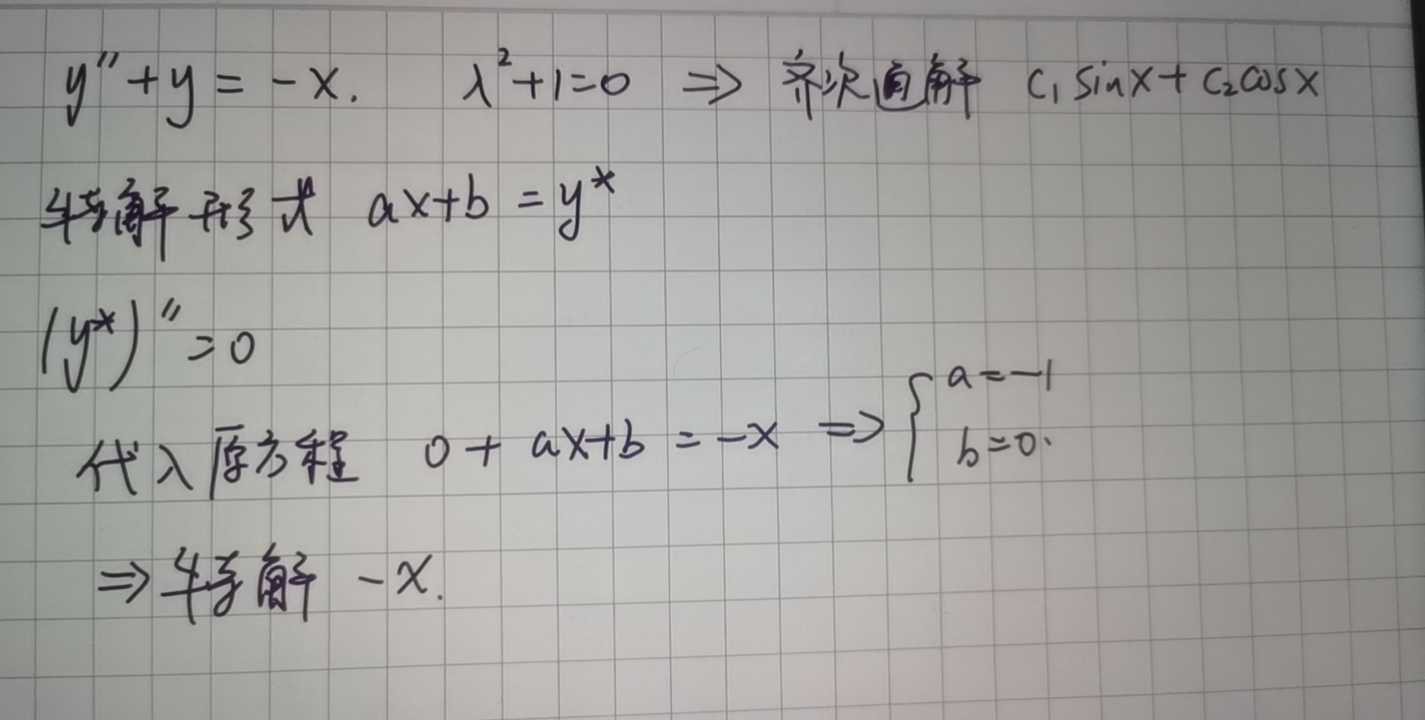 y''+y=-x. λ²+1=0 ⇒ 齐次通解 C₁sinx+C₂cosx
特解形式 ax+b=y*
(y*)''=0
代入原方程 0+ax+b=-x ⇒ { a=-1
b=0.
⇒特解 -x.